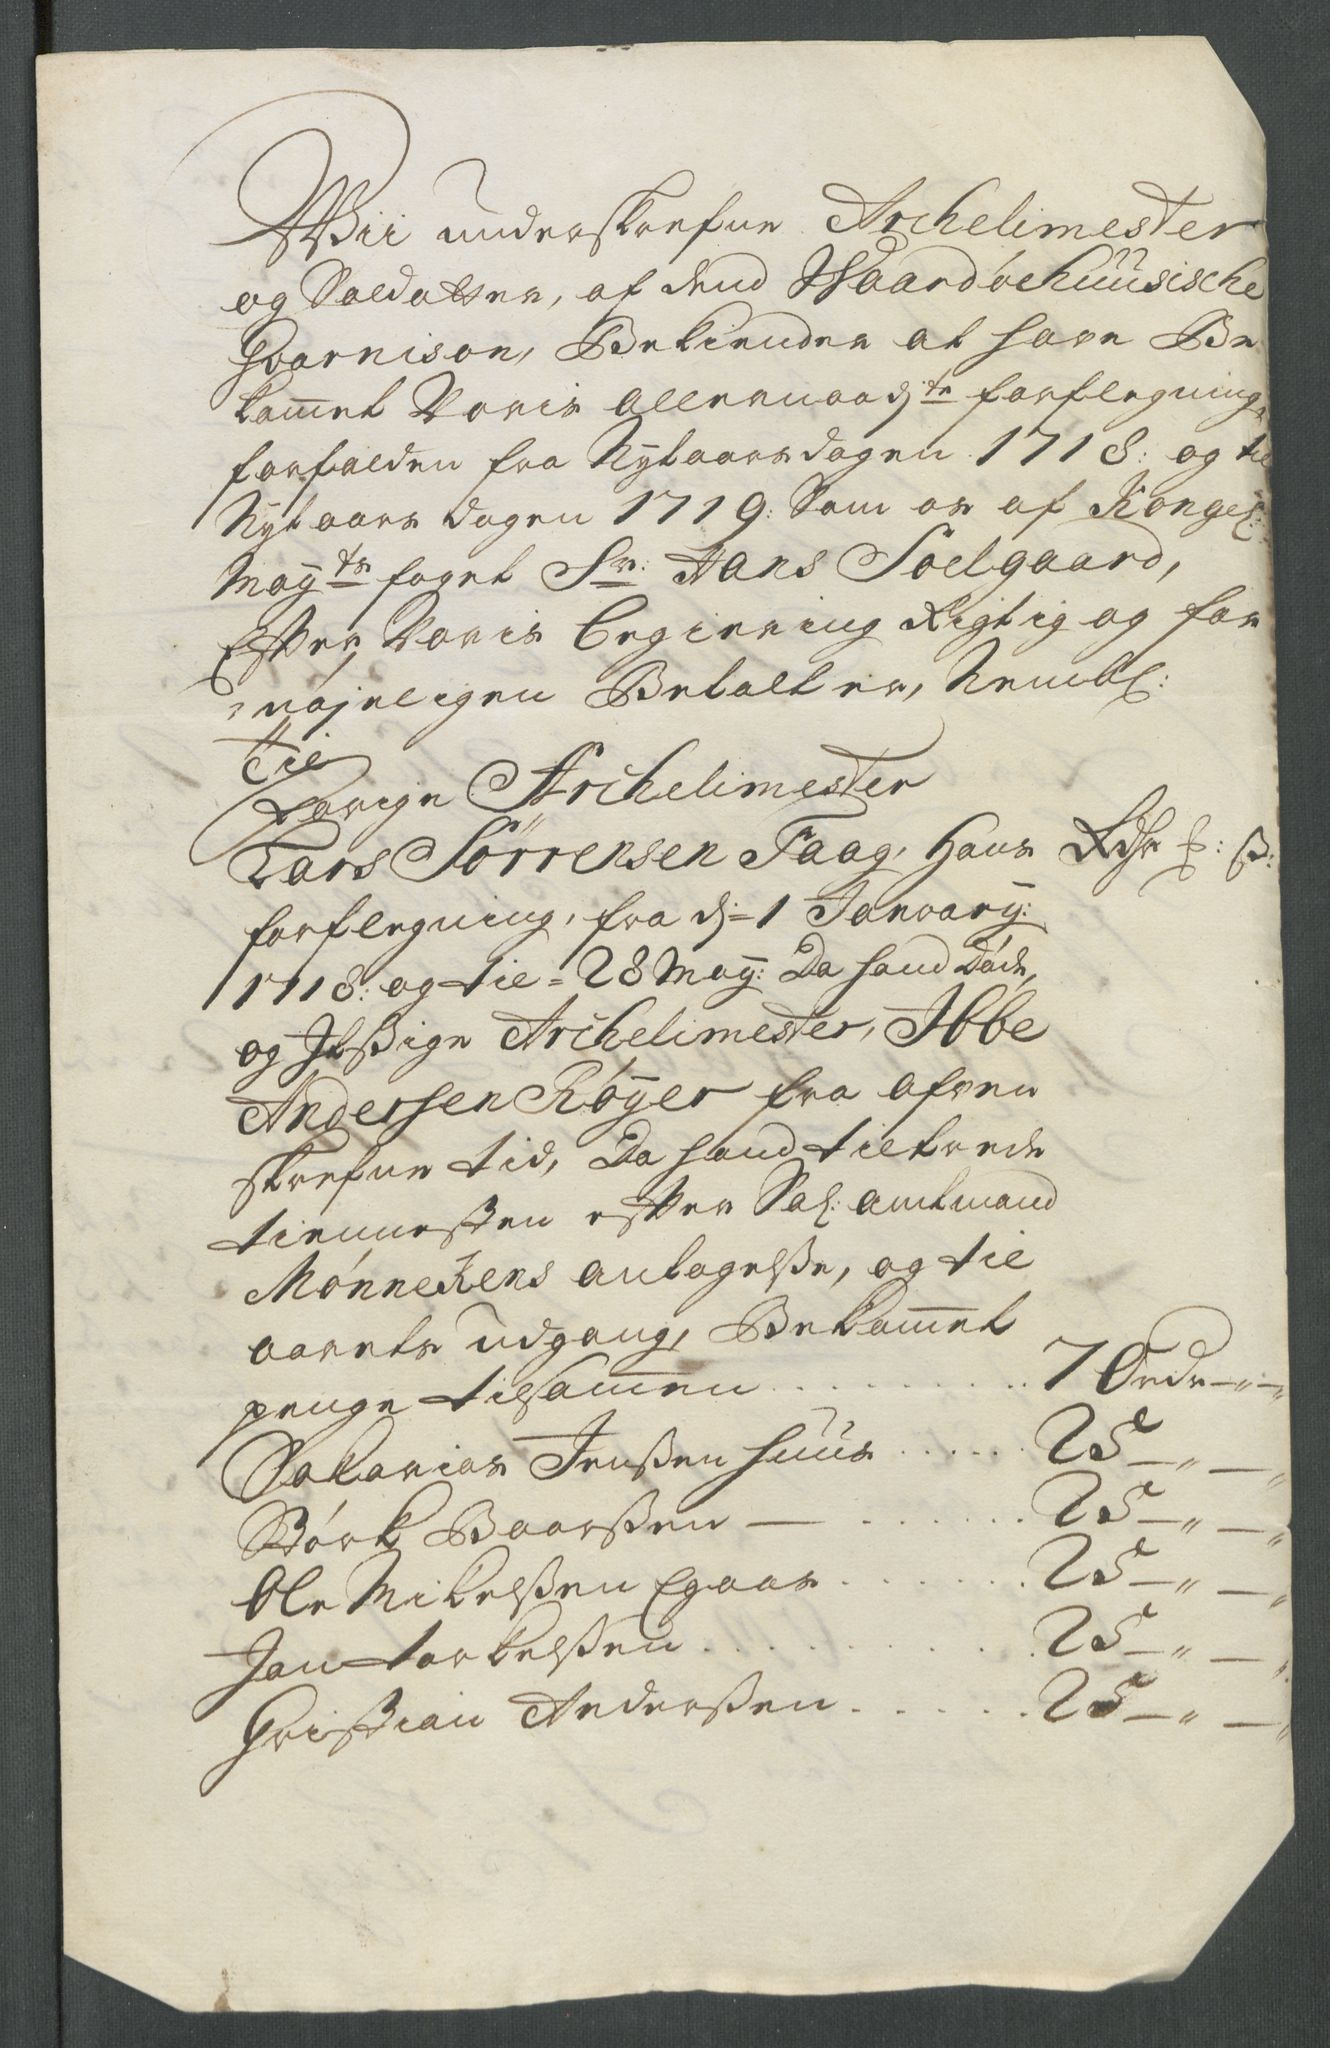 Wii underskrefne Archelimester
og Soldatter, af dend Waardøehuusische
Gvarnison, Bekiender at have Be
kom̅et Voris allernaadste forflegning,
forfalden fra Nytaarsdagen 1718: og til
Nytaarsdagen 1719: Som os af Kongel:
Mayts foget Sr: Hans Soelgaard,
Efter Voris begiering Rigtig og for
nøjeligen Betalt er, Nembl:
Til
Forige Archelimester
Lars Sörrensen Faag, Hans Rdr ƒ: ß:
forflegning, fra d: 1 January:
1718: og til = 28 May: Da hand døde,
og Jtzige Archelimester, Ibbe
Andersen Röyer fra ofven
skrefne tid, Da hand tiltrede
tiennesten efter Sal: amtmand
Mönnekens antagelse, og til
aarets udgang, Bekom̅et
penge tilsam̅en . . . . . . . . . 70 rdr — „ — „
Sakarias Jenßen Huus . . . . . 25 — „ — „
Børk Baarßen — . . . . . . . 25 — „ — „
Ole Mikelßen Egaas . . . . . . . 25 — „ — „
Jon Torkelßen . . . . . . . . . . 25 — „ — „
Christian Anderßen . . . . . . 25 — „ — „